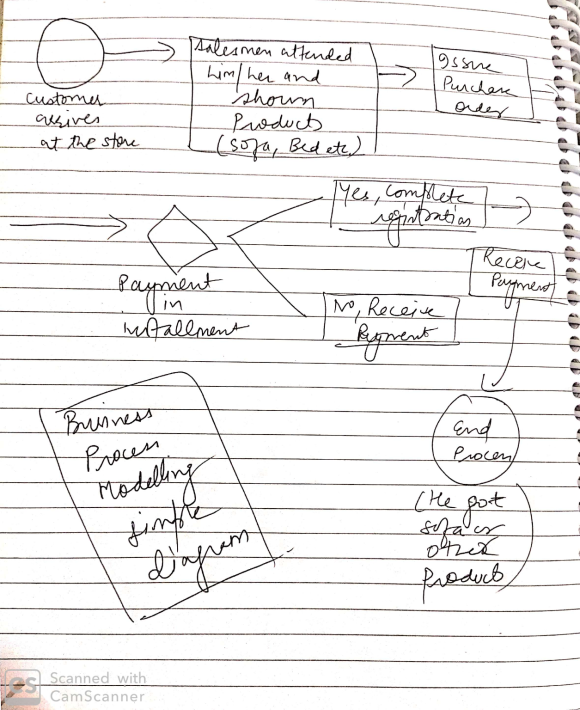 Customer
arrives
at the store
Salesmen attended
him/her and
shown
Products
(Sofa, Bed etc)
Issue
Purchase
order
Payment
in
installment
Yes, Complete
registration
No, Receive
Payment
Receive
Payment
End
Process
(He got
sofa or
other
products)
Business
Process
Modelling
simple
diagram
CS
Scanned with
CamScanner